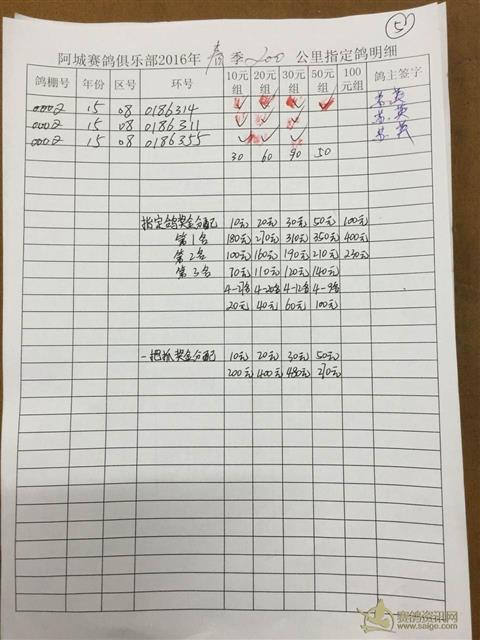 5
阿城赛鸽俱乐部2016年 春 季 200 公里指定鸽明细
鸽棚号 年份 区号 环号 10元组 20元组 30元组 50元组 100元组 鸽主签字
0002 15 08 0186314 ✓ ✓ ✓ ✓
0002 15 08 0186311 ✓ ✓ ✓
0002 15 08 0186355 ✓ ✓ ✓
30 60 90 50
指定鸽奖金分配 10元 20元 30元 50元 100元
第1名 180元 270元 310元 350元 400元
第2名 100元 160元 190元 210元 230元
第3名 70元 110元 120元 140元
20元 40元 60元 100元
一把抓奖金分配 10元 20元 30元 50元
200元 400元 480元 270元
赛鸽资讯网
www.saige.com